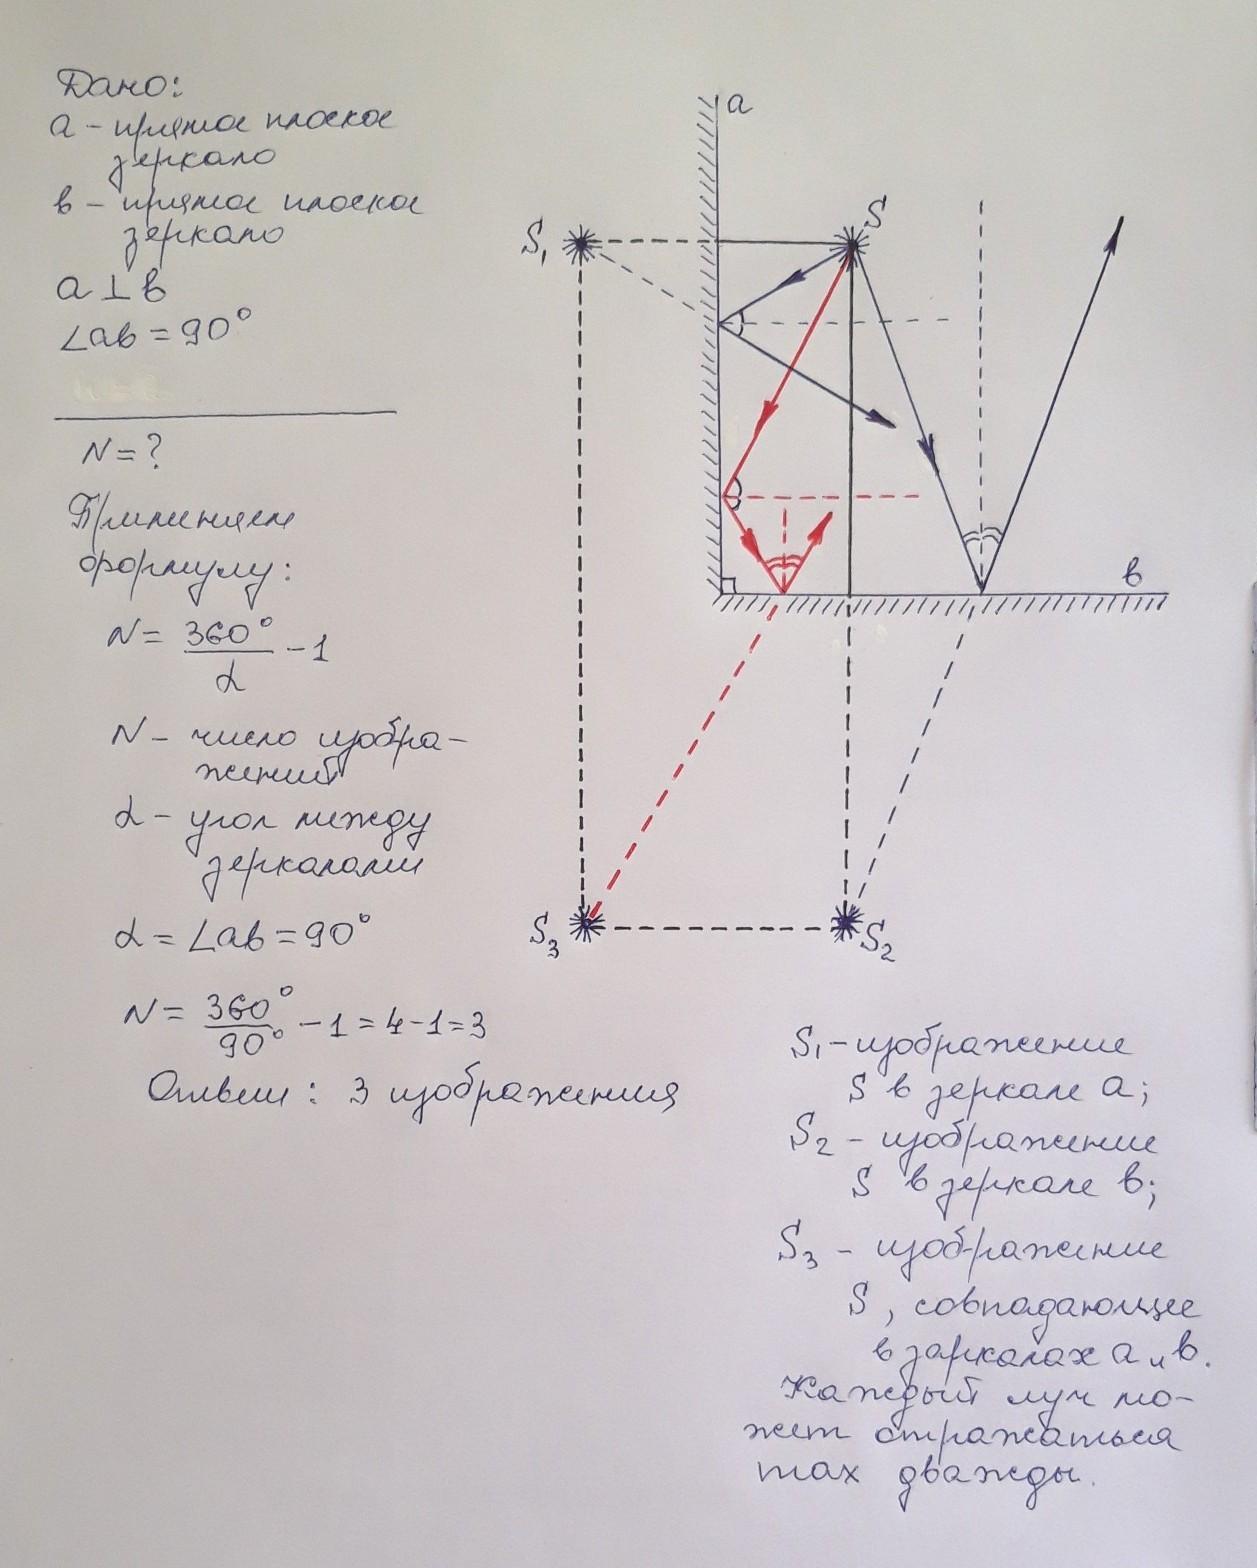 Дано:
a – прямое плоское
зеркало
в – прямое плоское
зеркало
a ⊥ в
∠aв = 90°
N = ?
Применяем
формулу:
N = 360°/α – 1
N – число изобра–
жений
α – угол между
зеркалами
α = ∠aв = 90°
N = 360°/90° – 1 = 4 – 1 = 3
Ответ: 3 изображения
a
S
S₁
в
S₃
S₂
S₁ – изображение
S в зеркале a;
S₂ – изображение
S в зеркале в;
S₃ – изображение
S, совпадающее
в заркалах a и в.
Каждый луч мо–
жет отражаться
max дважды.